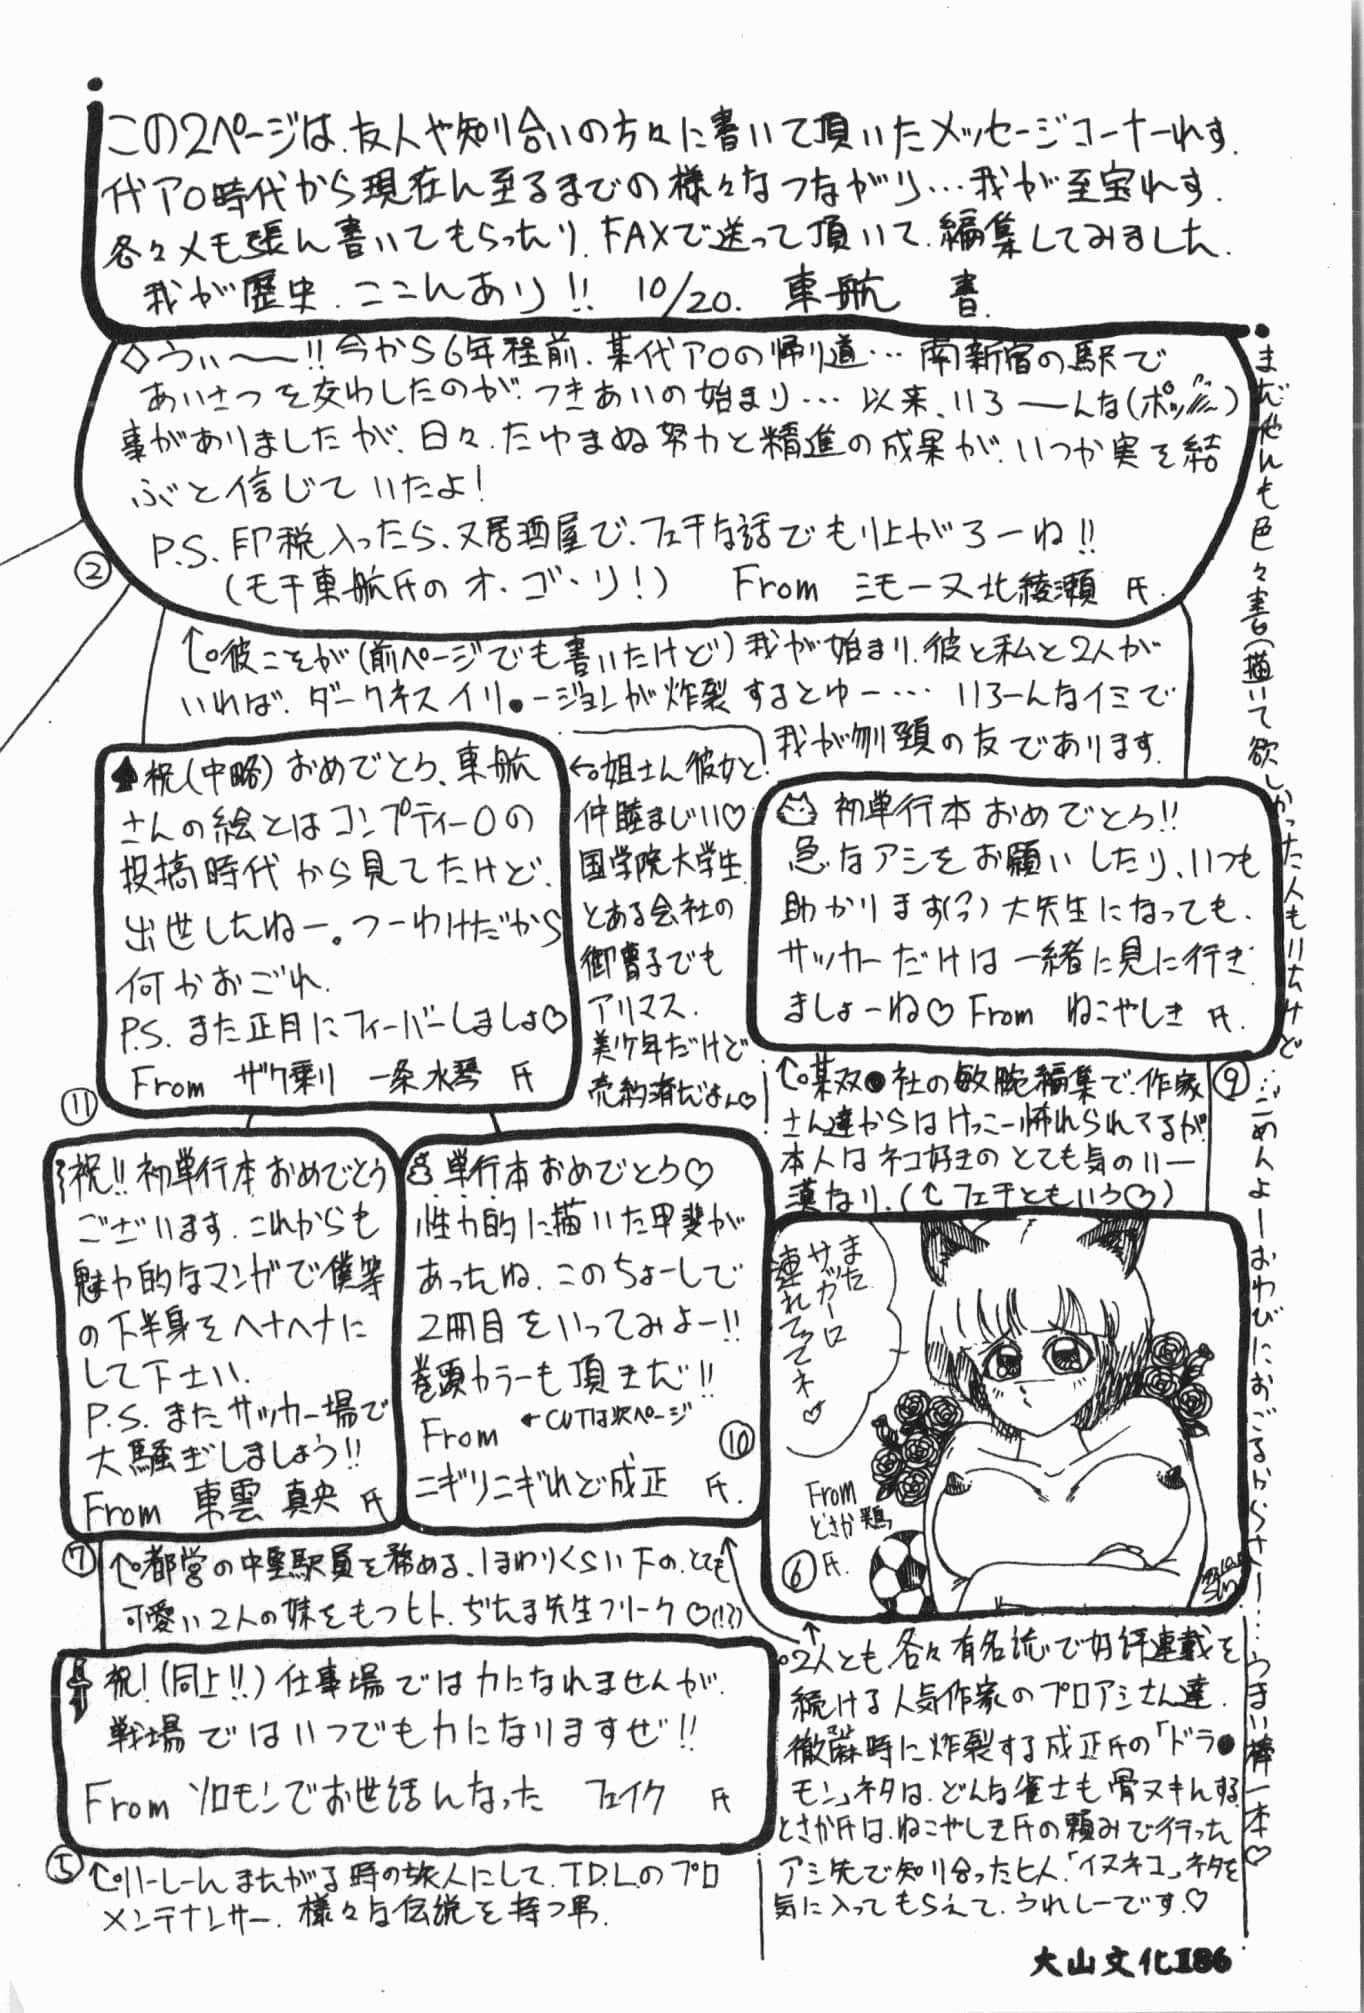 この2ページは、友人や知り合いの方々に書いて頂いたメッセージコーナーれす.
代アO時代から現在ん至るまでの様々なつながり…我が至宝れす.
各々メモ張ん書いてもらったり、FAXで送って頂いて、編集してみました.
我が歴史、ここんあり!! 10/20. 東航 書.
◇うぃ〜〜!! 今から6年程前、某代アOの帰り道… 南新宿の駅で
あいさつを交わしたのが、つきあいの始まり… 以来、いろーーんな(ポッ)
事がありましたが、日々、たゆまぬ努力と精進の成果が、いつか実を結
ぶと信じていたよ!
P.S. 印税入ったら、又居酒屋で、フェチな話でもり上がろーね!!
(モチ東航氏のオ・ゴ・リ!) From ミモーヌ北綾瀬 氏.
②
↑彼こそが(前ページでも書いたけど)我が始まり、彼と私と2人が
いれば、ダークネスイリ●ージョンが炸裂するとゆー… いろーんなイミで
我が刎頸の友であります.
♠祝(中略)おめでとう、東航
さんの絵とはコンプティーOの
投稿時代から見てたけど、
出世したねー。つーわけだから
何かおごれ.
P.S. また正月にフィーバーしましょ♡
From ザク乗り 一条水琴 氏
⑪
←姐さん彼女と
仲睦まじい♡
国学院大学生
とある会社の
御曹子でも
アリマス.
美少年だけど
売約済だよん♡
初単行本おめでとう!!
急なアシをお願いしたり、いつも
助かります(?) 大先生になっても、
サッカーだけは一緒に見に行き
ましょーね♡ From ねこやしき 氏.
⑨
↑某双●社の敏腕編集で、作家
さん達からはけっこー怖れられてるが、
本人はネコ好きのとても気のいー
漢なり.(↑フェチともいう♡)
祝!! 初単行本おめでとう
ございます. これからも
魅力的なマンガで僕等
の下半身をヘナヘナに
して下さい.
P.S. またサッカー場で
大騒ぎしましょう!!
From 東雲 真央 氏
⑦
単行本おめでとう♡
性力的に描いた甲斐が
あったね. このちょーしで
2冊目をいってみよー!!
巻頭カラーも頂きだ!!
From ←CUTは次ページ
ニギリニギれど成正 氏.
⑩
また
サッカーに
連れてってネ♡
From
どさか鶏
氏.
⑥
↑都営の中堅駅員を務める、1まわりくらい下の、とても
可愛い2人の妹をもつヒト. ぢたま先生フリーク♡(!?)
祝!(同上!!) 仕事場では力になれませんが、
戦場ではいつでも力になりますぜ!!
From ソロモンでお世話んなった フェイク 氏
⑤
↑リーレーんまたがる時の旅人にして、T.D.L.のプロ
メンテナンサー. 様々な伝説を持つ男.
↑2人とも、各々有名誌で好評連載を
続ける人気作家のプロアシさん達.
徹麻時に炸裂する成正氏の「ドラ●
モン」ネタは、どんな雀士も骨ヌキんする.
とさか氏は、ねこやしき氏の頼みで行った
アシ先で知り合ったヒ人.「イヌネコ」ネタを
気に入ってもらえて、うれしーです.♡
まだやんも色々書(描)いて欲しかった人もいたけど…ごめんよーおわびにおごるからさー…うまい棒一本♡
大山文化Ⅱ86